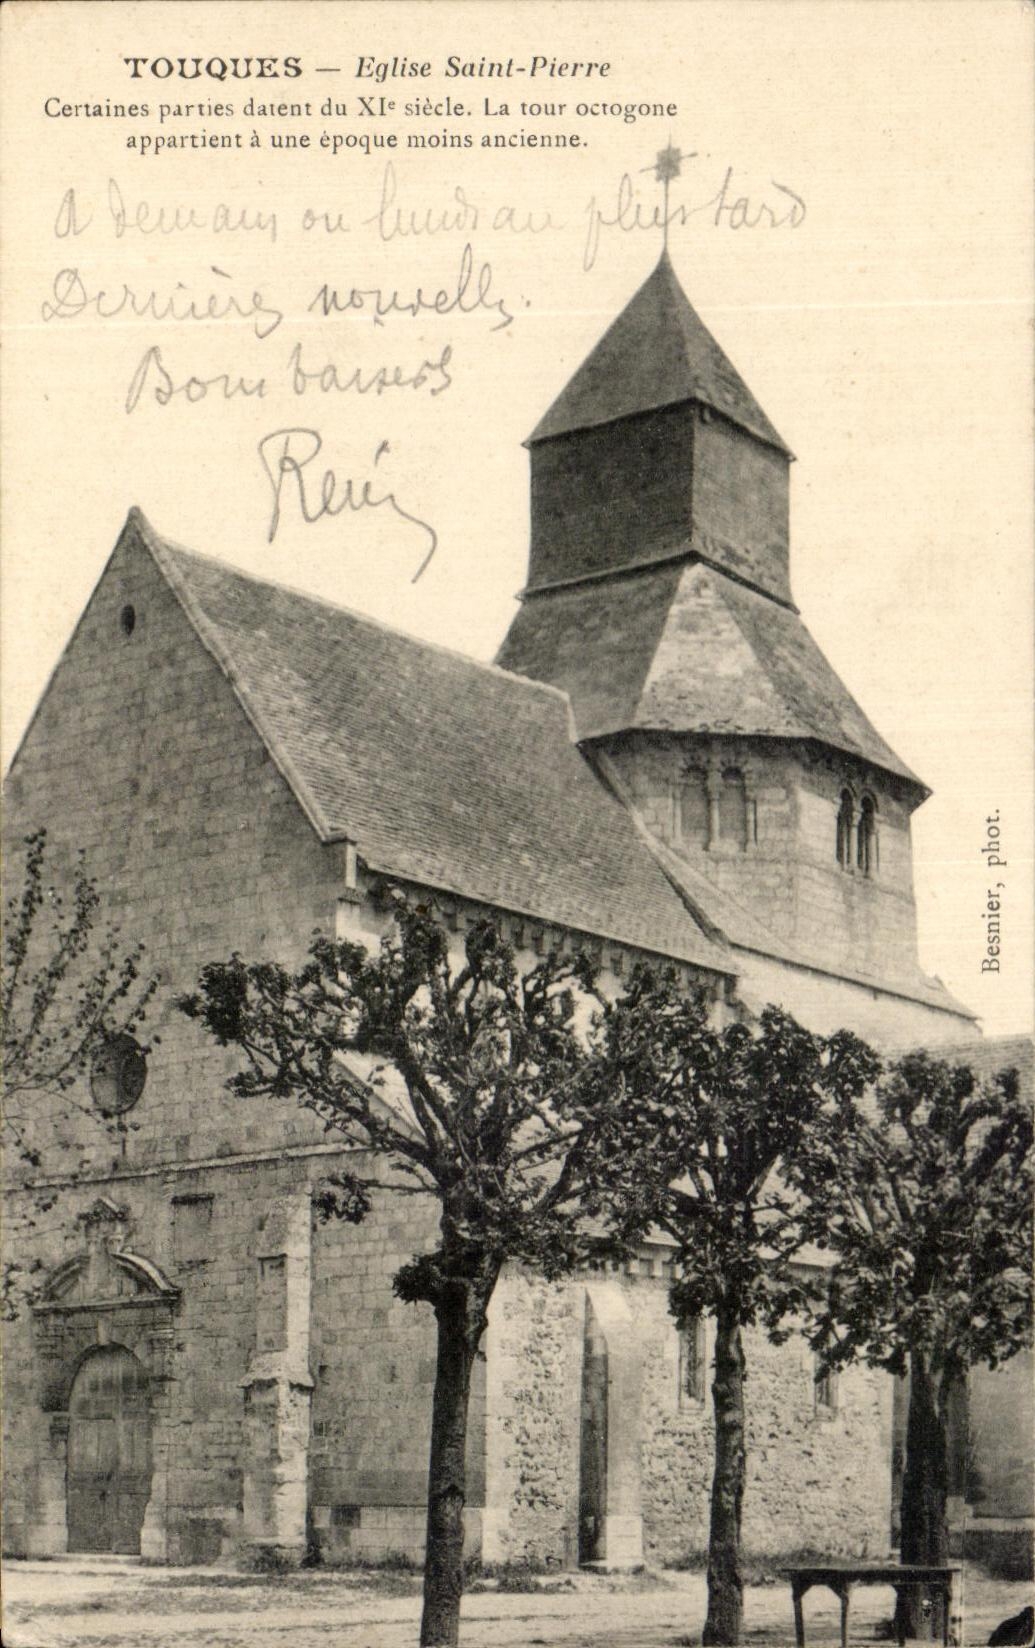 TOUQUES — Eglise Saint-Pierre
Certaines parties datent du XIe siècle. La tour octogone
appartient à une époque moins ancienne.
A demain ou lundi au plus tard
Dernières nouvelles.
Bons baisers
René
Besnier, phot.